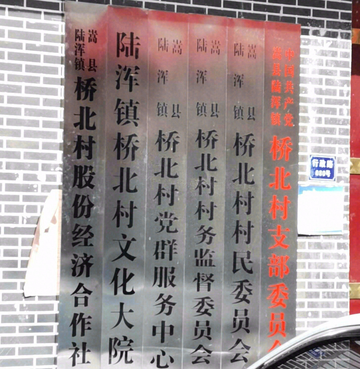 中国共产党
嵩县陆浑镇
桥北村支部委员会
嵩县
陆浑镇
桥北村村民委员会
嵩县
陆浑镇
桥北村村务监督委员会
嵩县
陆浑镇
桥北村党群服务中心
陆浑镇桥北村文化大院
嵩县
陆浑镇
桥北村股份经济合作社
行政路